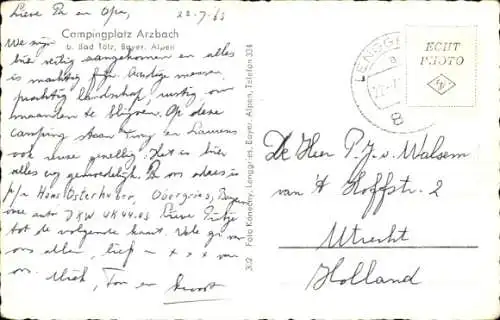 Lieve Pa en Opa, 22.7.63
Campingplatz Arzbach
b. Bad Tölz, Bayer. Alpen
We zijn
hier veilig aangekomen en alles
is machtig fijn. Aardige mensen,
prachtig landschap, rustig om
maanden te blijven. Op deze
camping staan Tiny en Laurens
ook reuze gezellig. Het is hier
alles erg gemoedelijk. En ons adres is
p/a Hans Osterhuber, Obergries, Bayern
onze auto DKW UK 44.03 Lieve
tot de volgende kaart. Vele gr van
ons allen, lief x x x van
ons. Miek, Ton en kroost
Foto Konecny, Lenggries, Bayer. Alpen, Telefon 334
LENGGR
22.7
8
ECHT
PHOTO
De Heer P. J. v. Walsem
van 't Hoffstr. 2
Utrecht
Holland